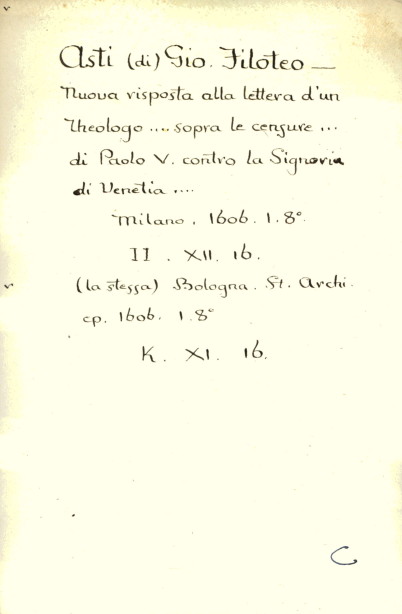 Asti (di) Gio. Filoteo —
Nuova risposta alla lettera d'un
Theologo .... sopra le censure ...
di Paolo V. contro la Signoria
di Venetia ....
Milano. 1606. 1. 8°.
II. XII. 16.
(la stessa) Bologna. St. Archi.
ep. 1606. 1. 8°
K. XI. 16.
C